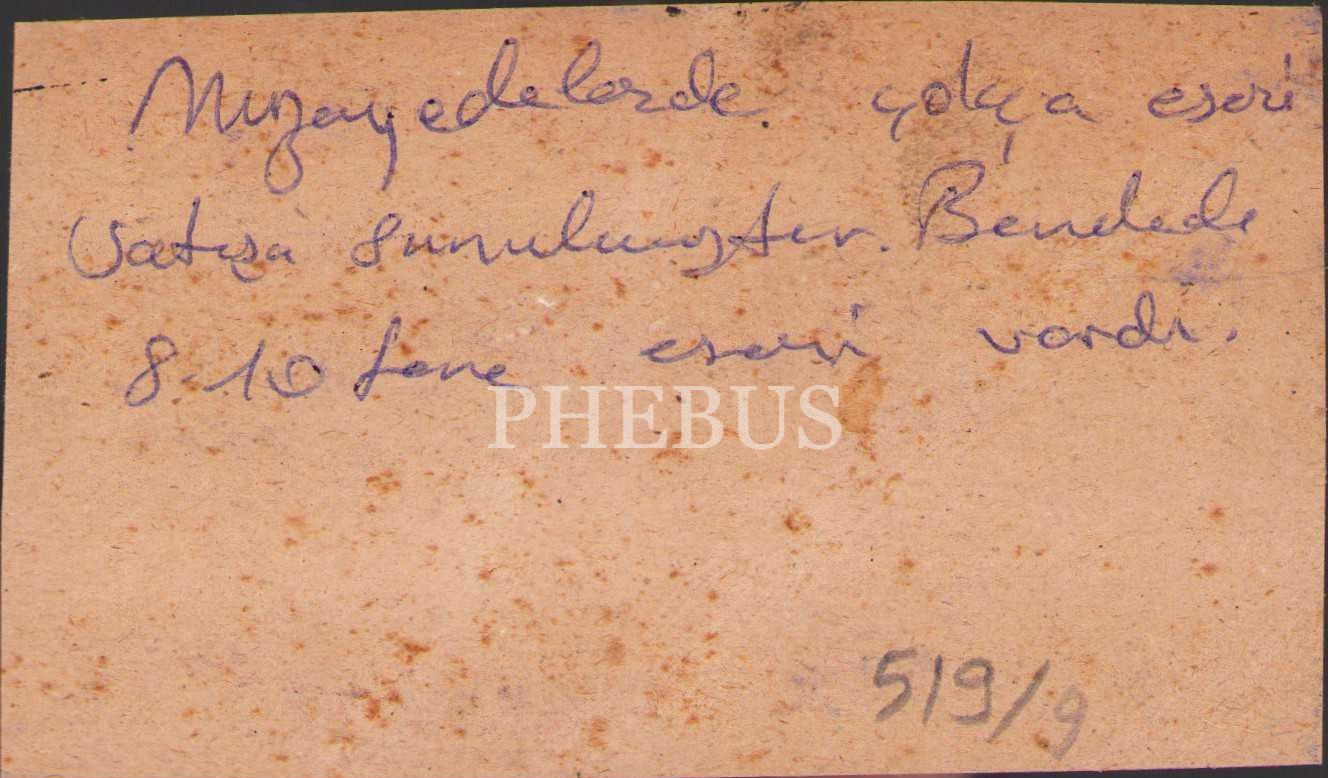 Müzayedelerde çokça eseri
satışa sunulmuştur. Bendede
8-10 tane eseri vardı.
PHEBUS
519/9